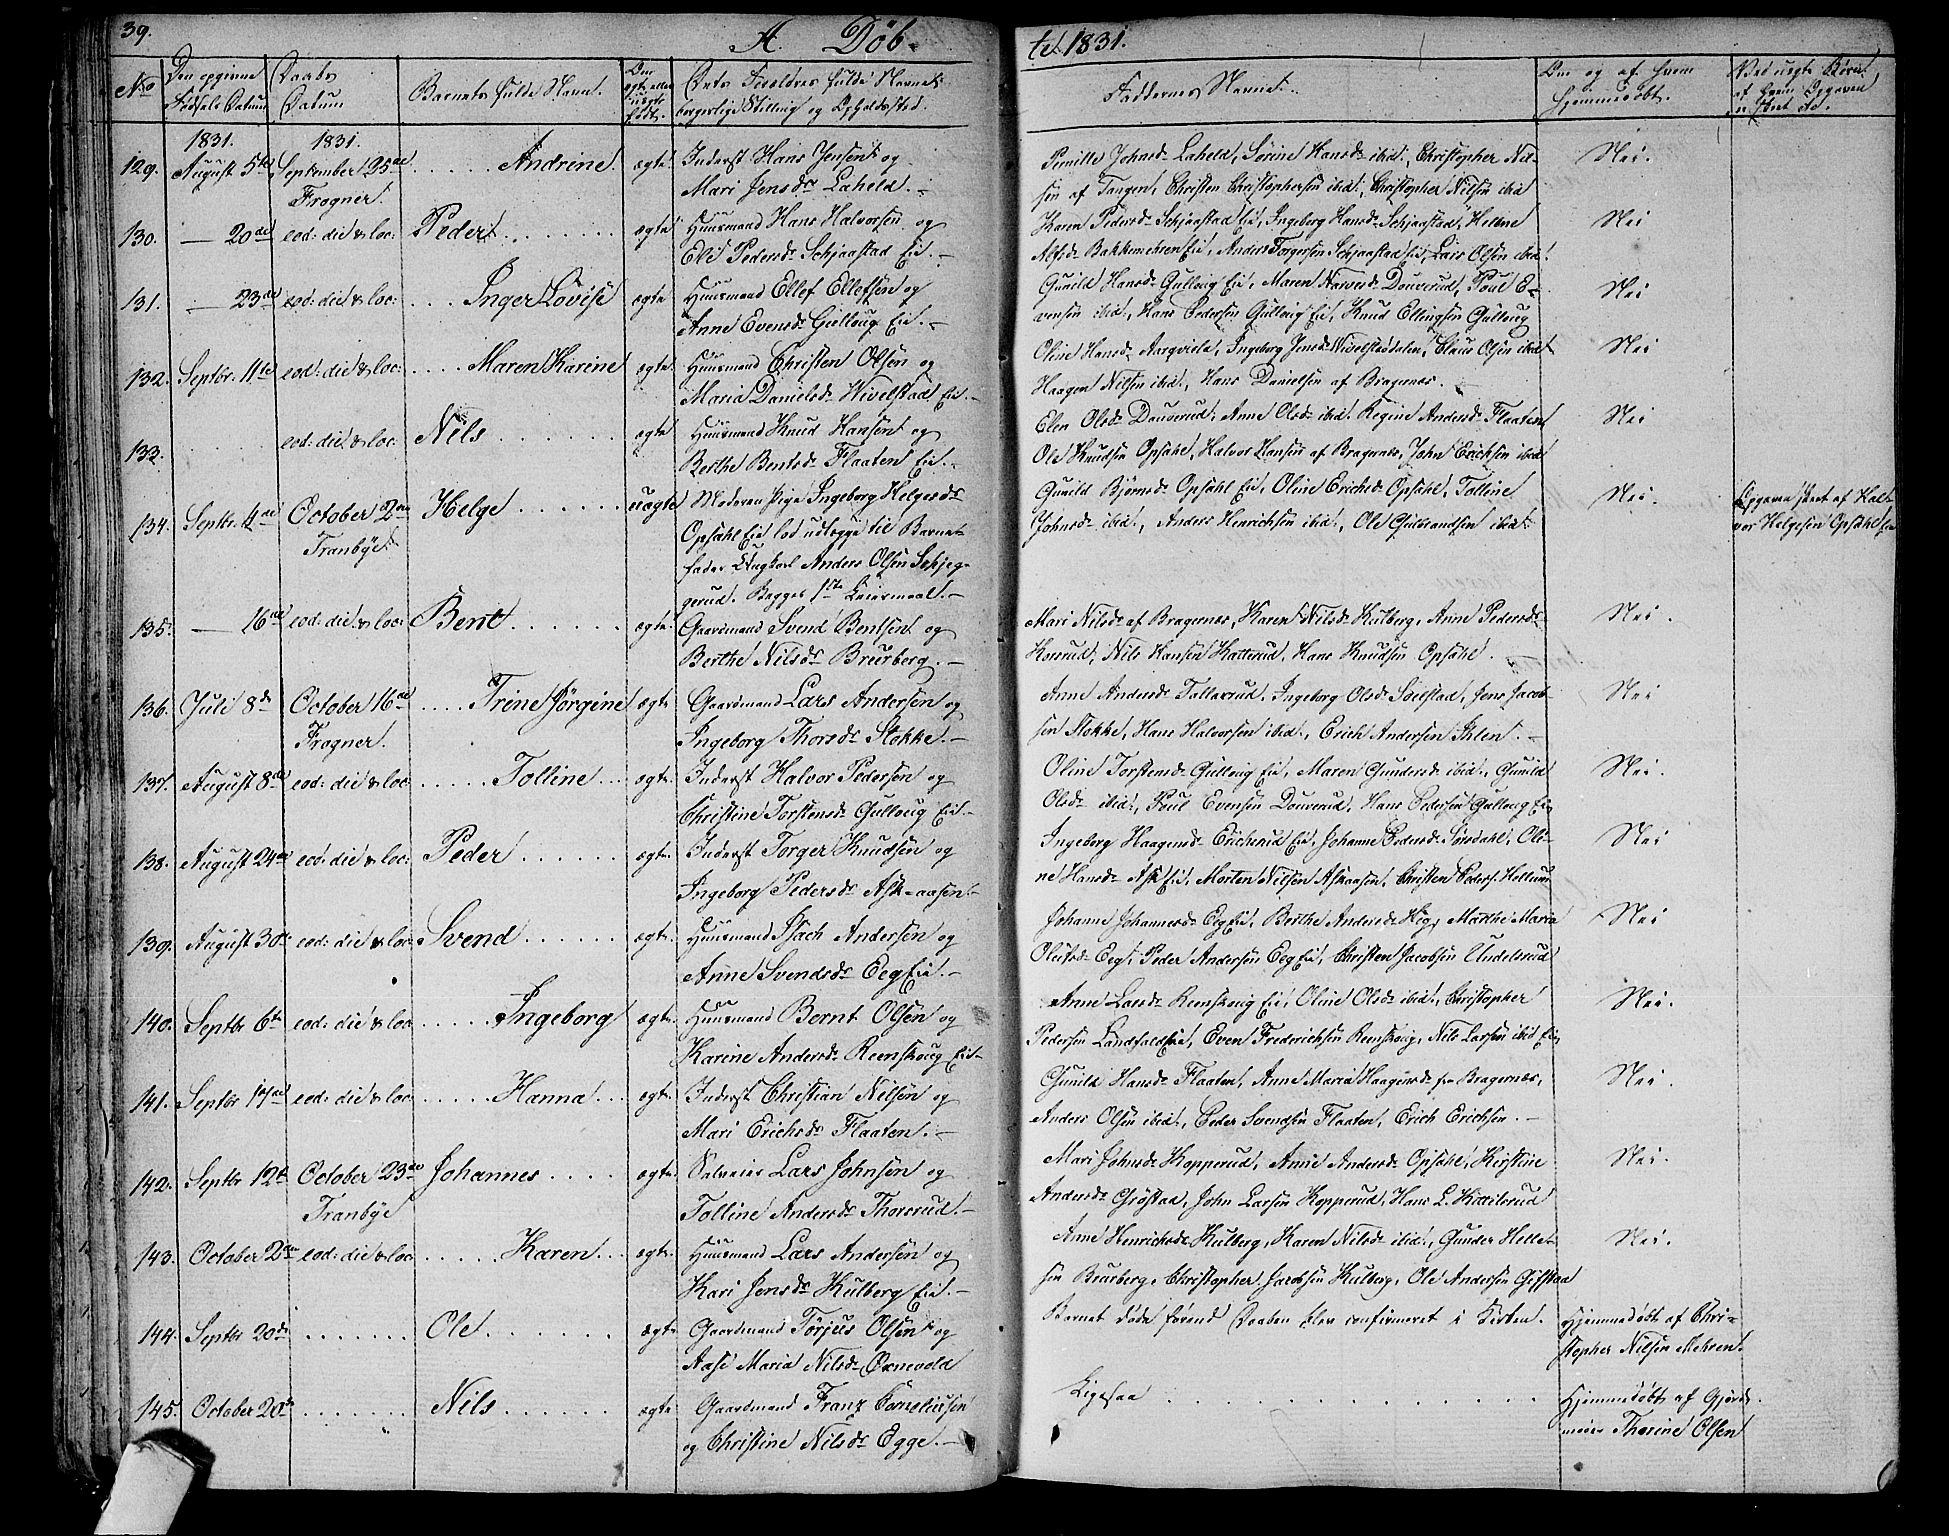 39.
A. Döb-
te 1831.
No
Den opgivne Fødsels Datum
Daabs Datum
Barnets fulde Navn.
Om ægte eller uægte født.
Dets Forældres fulde Navne borgerlige Stilling og Opholds Sted.
Faddernes Navne.
Om og af hvem hjemmedøbt.
Ved uægte Børn, af hvem Opgaven er skeet
1831. 1831.
129. August 5te September 25de Andrine ægte Inderst Hans Jensen og
Frogner. Mari Jensdr Laheld.
Pernille Johnsd. Laheld, Sørine Hansd. ibid., Christopher Nil-
sen af Tangen, Christen Christophersen ibid., Christopher Nilsen ibid
Nei
130. — 20de eod: die & loc: Peder ægte Huusmand Hans Halvorsen og
Eli Pedersd. Schjaastad Eie.
Karen Pedersd. Schjaastad Eie, Ingeborg Hansd. Schjaastad, Helene
Alfsd. Bakkemehren Eie, Anders Torgersen Schjaastad Eie, Lars Olsen ibid.
Nei
131. — 23de eod: die & loc: Inger Lovise ægte Huusmand Ellef Ellefsen og
Anne Evensd. Gulloug Eie.
Gunild Hansd. Gulloug Eie, Maren Narvesd. Douverud, Poul E-
vensen ibid., Hans Pedersen Gulloug Eie, Knud Ellingsen Gulloug
Nei
132. Septbr. 11te eod: die & loc: Maren Karine ægte Huusmand Christen Olsen og
Maria Danielsd. Wivelstad Eie.
Oline Hansd. Aarqvisla, Ingeborg Jensd. Wivelstaddalen, Claus Olsen ibid
Haagen Nilsen ibid., Hans Danielsen af Bragernæs.
Nei
133. eod: die & loc: Nils ægte Huusmand Knud Hansen og
Berthe Bentsd. Flaaten Eie.
Elen Olsd. Douverud, Anne Olsd. ibid. Regine Andersd. Flaaten
Ole Knudsen Opsahl, Halvor Hansen af Bragernæs, John Erichsen ibid
Nei
134. Septbr. 4de October 2den Helge uægte Moderen Pige Ingeborg Helgesdr
Tranbye. Opsahl Eie lod udlægge til Barne-
fader Ungkarl Anders Olsen Schjeg-
gerud. Begges 1ste Leiermaal.
Gunild Bjørnsd. Opsahl Eie, Oline Erichsd. Opsahl, Tolline
Johnsd. ibid., Anders Henrichsen ibid., Ole Gulbrandsen ibid.
Nei.
Opgaven skeet af Hal-
vor Helgesen Opsahl Eie
135. — 16de eod: die & loc: Bent ægte Gaardmand Svend Bentsen og
Berthe Nilsdr Brurberg.
Mari Nilsd. af Bragernæs, Karen Nilsd. Kulberg, Anne Pedersd.
Korsrud, Nils Hansen Katterud, Hans Knudsen Opsahl.
Nei.
136. Juli 8de October 16de Trine Jørgine ægte Gaardmand Lars Andersen og
Frogner. Ingeborg Thorsdr Stokke.
Anne Andersd. Tollerud, Ingeborg Olsd. Solstad, Jens Jacob-
sen Stokke, Hans Halvorsen ibid., Erich Andersen Ihlen.
Nei
137. August 8de eod: die & loc: Tolline ægte Inderst Halvor Pedersen og
Christine Torstensd. Gulloug Eie.
Oline Torstensd. Gulloug Eie, Maren Gundersd. ibid., Gunild
Olsd. ibid., Poul Evensen Douverud, Hans Pedersen Gulloug Eie
Nei.
138. August 24de eod: die & loc: Peder ægte Inderst Torger Knudsen og
Ingeborg Pedersdr Askaasen.
Ingeborg Haagensd. Erichsrud Eie, Johanne Pedersd. Sørsdahl, Oli-
ne Hansd. Ask Eie, Morten Nilsen Askaasen, Christen Peders.
Nei
139. August 30te eod: die & loc: Svend ægte Huusmand Isach Andersen og
Anne Svendsdr Eeg Eie.
Johanne Johannesd. Eeg Eie, Berthe Andersd. Hæg, Marthe Maria
Olufsd. Eeg, Peder Andersen Eeg Eie, Christen Jacobsen Undelsrud
Nei
140. Septbr 6te eod: die & loc: Ingeborg ægte Huusmand Bernt Olsen og
Karine Andersd. Reenskoug Eie
Anne Larsd. Reenskoug Eie, Oline Olsd. ibid., Christopher
Pedersen Landfald Eie, Even Frederichsen Reenskoug, Nils Larsen ibid Eie
Nei.
141. Septbr 17de eod: die & loc: Hanna ægte Inderst Christian Nilsen og
Mari Erichsdr Flaaten.
Gunild Hansd. Flaaten, Anne Maria Haagensd. fra Bragernæs,
Anders Olsen ibid., Peder Svendsen Flaaten, Erich Erichsen.
Nei.
142. Septbr 12te October 23de Johannes ægte Selveier Lars Johnsen og
Tranbye Tolline Andersdr Thorsrud.
Mari Johnsd. Kopperud, Anne Andersd. Opsahl, Kirstine
Andersd. Grøstad, John Larsen Kopperud, Hans L. Kittilsrud
Nei.
143. October 2den eod: die & loc: Karen ægte Huusmand Lars Andersen og
Kari Jensdr Kulberg Eie.
Anne Henrichsd. Kulberg, Karen Nilsd. ibid., Gunder Hellet-
sen Brurberg, Christopher Jacobsen Kulberg, Ole Andersen Gifstad
Nei.
144. Septbr 20de Ole ægte Gaardmand Torjus Olsen og
Aase Maria Nilsd. Oxnevold
Barnet døde førend Daaben blev confirmeret i Kirken.
Hjemmedøbt af Chri-
stopher Nilsen Mehren.
145. October 20de Nils ægte Gaardmand Franz Corneliusen
og Christine Nilsdr Egge.
Ligesaa
Hjemmedøbt af Gjorde-
moer Thorine Olsen